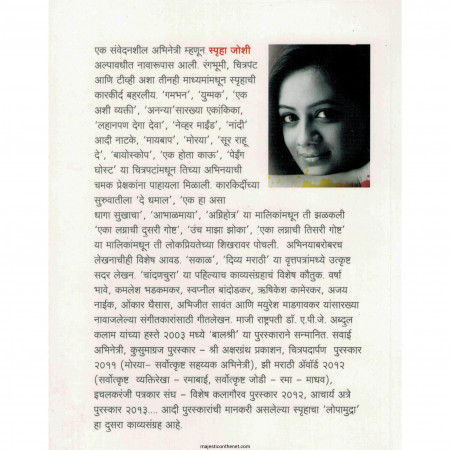 एक संवेदनशील अभिनेत्री म्हणून स्पृहा जोशी
अल्पावधीत नावारूपास आली. रंगभूमी, चित्रपट
आणि टीव्ही अशा तीनही माध्यमांमधून स्पृहाची
कारकीर्द बहरलीय. 'गमभन', 'युग्मक', 'एक
अशी व्यक्ती', 'अनन्या'सारख्या एकांकिका,
'लहानपण देगा देवा', 'नेव्हर माईंड', 'नांदी'
आदी नाटके, 'मायबाप', 'मोरया', 'सूर राहू
दे', 'बायोस्कोप', 'एक होता काऊ', 'पेईंग
घोस्ट' या चित्रपटांमधून तिच्या अभिनयाची
चमक प्रेक्षकांना पाहायला मिळाली. कारकिर्दीच्या
सुरुवातीला 'दे धमाल', 'एक हा असा
धागा सुखाचा', 'आभाळमाया', 'अग्निहोत्र' या मालिकांमधून ती झळकली
'एका लग्नाची दुसरी गोष्ट', 'उंच माझा झोका', 'एका लग्नाची तिसरी गोष्ट'
या मालिकांमधून ती लोकप्रियतेच्या शिखरावर पोचली. अभिनयाबरोबरच
लेखनाचीही विशेष आवड. 'सकाळ', 'दिव्य मराठी' या वृत्तपत्रांमध्ये उत्कृष्ट
सदर लेखन. 'चांदणचुरा' या पहिल्याच काव्यसंग्रहाचं विशेष कौतुक. वर्षा
भावे, कमलेश भडकमकर, स्वप्नील बांदोडकर, ऋषिकेश कामेरकर, अजय
नाईक, ओंकार घैसास, अभिजीत सावंत आणि मयुरेश माडगावकर यांसारख्या
नावाजलेल्या संगीतकारांसाठी गीतलेखन. माजी राष्ट्रपती डॉ. ए.पी.जे. अब्दुल
कलाम यांच्या हस्ते २००३ मध्ये 'बालश्री' या पुरस्काराने सन्मानित. सवाई
अभिनेत्री, कुसुमाग्रज पुरस्कार - श्री अक्षरग्रंथ प्रकाशन, चित्रपदार्पण पुरस्कार
२०११ (मोरया- सर्वोत्कृष्ट सहाय्यक अभिनेत्री), झी मराठी अ‍ॅवॉर्ड २०१२
(सर्वोत्कृष्ट व्यक्तिरेखा - रमाबाई, सर्वोत्कृष्ट जोडी - रमा - माधव),
इचलकरंजी पत्रकार संघ - विशेष कलागौरव पुरस्कार २०१२, आचार्य अत्रे
पुरस्कार २०१३.... आदी पुरस्कारांची मानकरी असलेल्या स्पृहाचा 'लोपामुद्रा'
हा दुसरा काव्यसंग्रह आहे.
majesticonthenet.com